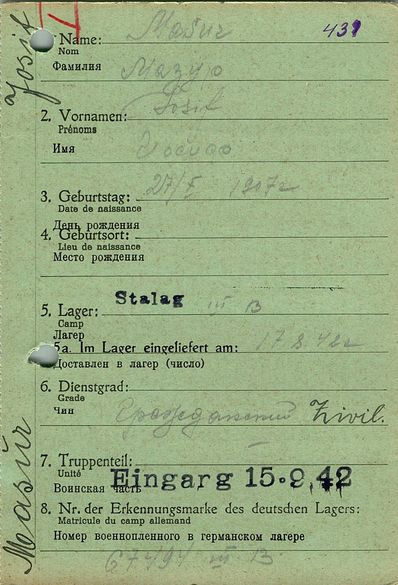 Josif
Name: Mašur
439
Nom
Фамилия Мазур
2. Vornamen: Josif
Prénoms
Имя
3. Geburtstag: 27/I 1907г
Date de naissance
День рождения
4. Geburtsort:
Lieu de naissance
Место рождения
5. Lager: Stalag III B
Camp
Лагер
5a. Im Lager eingeliefert am: 17 8. 42г
Доставлен в лагер (число)
6. Dienstgrad:
Grade
Чин Гражданский Zivil.
7. Truppenteil: —
Unité
Воинская часть
Eingarg 15.9.42
8. Nr. der Erkennungsmarke des deutschen Lagers:
Matricule du camp allemand
Номер военнопленного в германском лагере
67494 III B
Mašur